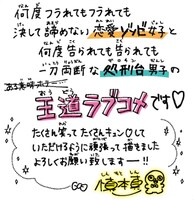 何度フラれてもフラれても
決して諦めない恋愛ゾンビ女子と
何度告られても告られても
一刀両断な処刑台男子の
王道ラブコメです♡
たくさん笑ってたくさんキュン♡して
いただけるように頑張って描きました
よろしくお願い致しますー!!